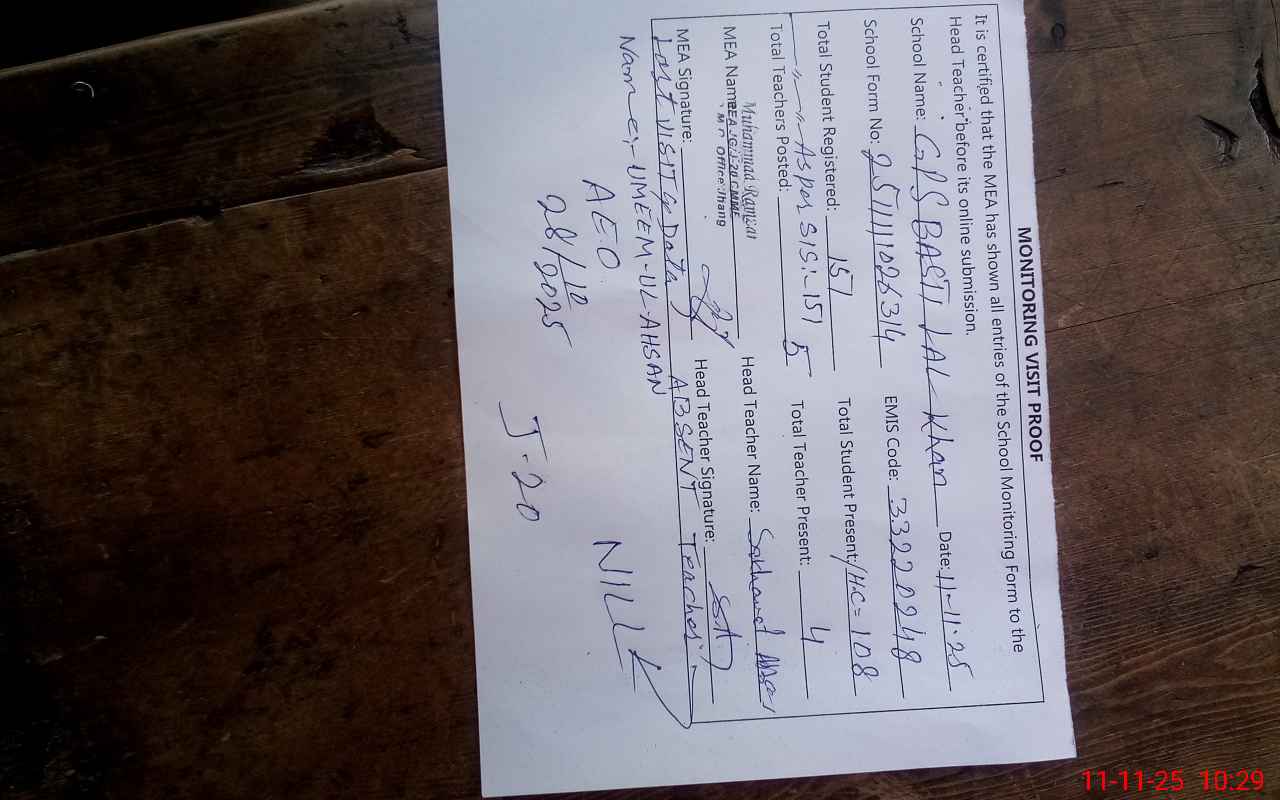 MONITORING VISIT PROOF
It is certified that the MEA has shown all entries of the School Monitoring Form to the
Head Teacher before its online submission.
School Name: GPS BASTI LAL Khan Date: 11-11-25
School Form No: 251111026314 EMIS Code: 33220248
Total Student Registered: 151 Total Student Present/HC= 108
As per SIS:- 151
Total Teachers Posted: 5 Total Teacher Present: 4
Muhammad Ramzan
MEA Name: Head Teacher Name: Sakhawat
Office Jhang
MEA Signature: Head Teacher Signature:
Last VISIT Data ABSENT Teacher:-
Name:- UMEEM-UL-AHSAN NILL
A.E.O
28/10/2025 J-20
11-11-25 10:29